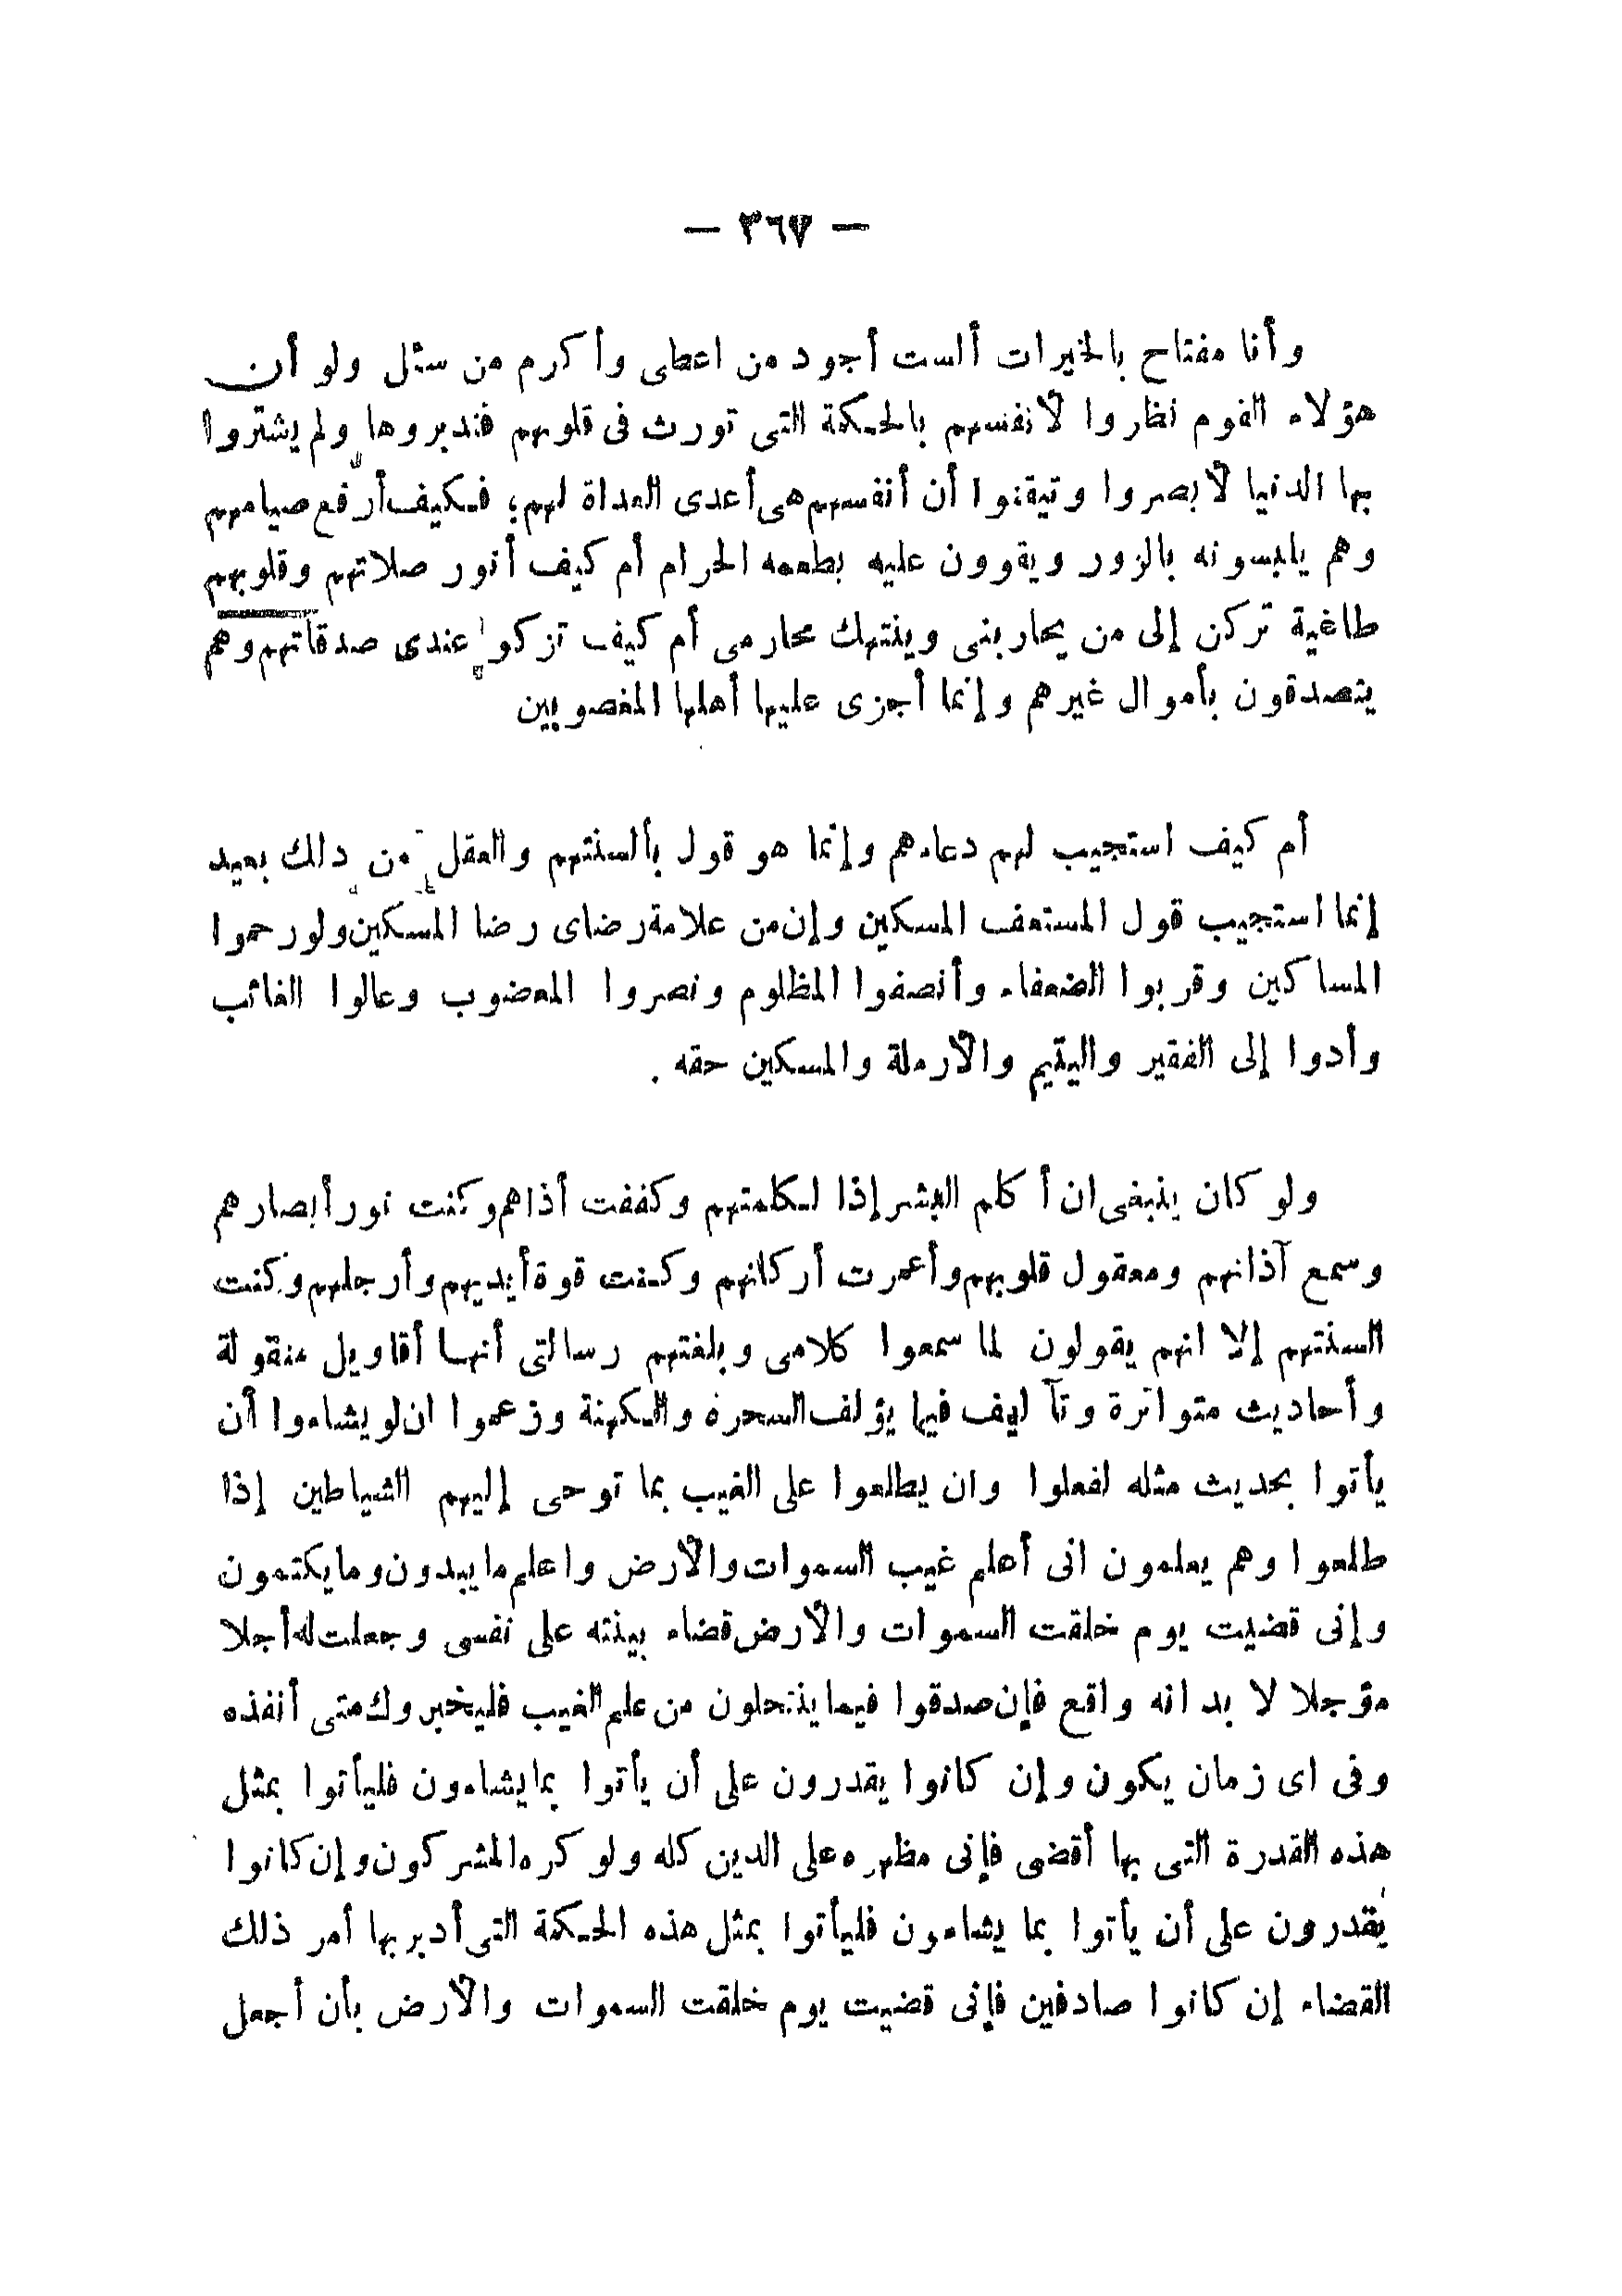 — ٣٦٧ —
وأنا مفتاح بالخيرات ألست أجود من اعطى وأكرم من سئل ولو أن
هؤلاء القوم نظروا لأنفسهم بالحكمة التى تورث فى قلوبهم فتدبروها ولم يشتروا
بها الدنيا لأبصروا وتيقنوا أن أنفسهم هى أعدى العداة لهم؛ فكيف أرفع صيامهم
وهم يلبسونه بالزور ويقوون عليه بطعمه الحرام أم كيف أنور صلاتهم وقلوبهم
طاغية تركن إلى من يحاربنى وينتهك محارمى أم كيف تزكو عندى صدقاتهم وهم
يتصدقون بأموال غيرهم وإنما أجزى عليها أهلها المغصوبين
أم كيف استجيب لهم دعاءهم وإنما هو قول بألسنتهم والعقل من ذلك بعيد
إنما استجيب قول المستعفف المسكين وإن من علامة رضاى رضا المسكين ولو رحموا
المساكين وقربوا الضعفاء وأنصفوا المظلوم ونصروا المعضوب وعالوا الغائب
وأدوا إلى الفقير واليتيم والأرملة والمسكين حقه .
ولو كان ينبغى ان أكلم البشر إذا لكلمتهم وكففت أذاهم وكنت نور أبصارهم
وسمع آذانهم ومعقول قلوبهم وأعمرت أركانهم وكنت قوة أيديهم وأرجلهم وكنت
السنتهم إلا انهم يقولون لما سمعوا كلامى وبلغتهم رسالتى أنها أقاويل منقولة
وأحاديث متواترة وتآليف فيما يؤلف السحرة والكهنة وزعموا ان لو يشاءوا أن
يأتوا بحديث مثله لفعلوا وان يطلعوا على الغيب بما توحى إليهم الشياطين إذا
طلعوا وهم يعلمون انى أعلم غيب السموات والأرض واعلم ما يبدون وما يكتمون
وإنى قضيت يوم خلقت السموات والأرض قضاء بينته على نفسى وجعلت له أجلا
مؤجلا لا بد انه واقع فإن صدقوا فيما ينتحلون من علم الغيب فليخبروك متى أنفذه
وفى اى زمان يكون وإن كانوا يقدرون على أن يأتوا بما يشاءون فليأتوا بمثل
هذه القدرة التى بها أقضى فإنى مظهره على الدين كله ولو كره المشركون وإن كانوا
يقدرون على أن يأتوا بما يشاءون فليأتوا بمثل هذه الحكمة التى أدبر بها أمر ذلك
القضاء إن كانوا صادقين فإنى قضيت يوم خلقت السموات والأرض بأن أجعل